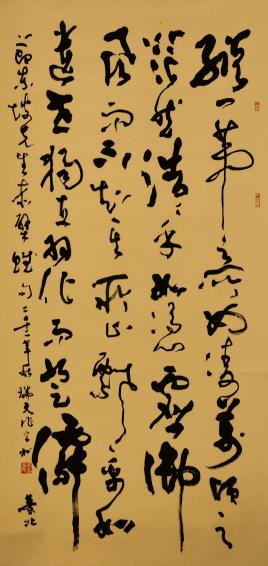 縱一葦之所如凌萬頃之
茫然浩〻乎如馮虛御
風而不知其所止飄〻乎如
遺世獨立羽化而登仙
節東坡先生赤壁賦句
臺北